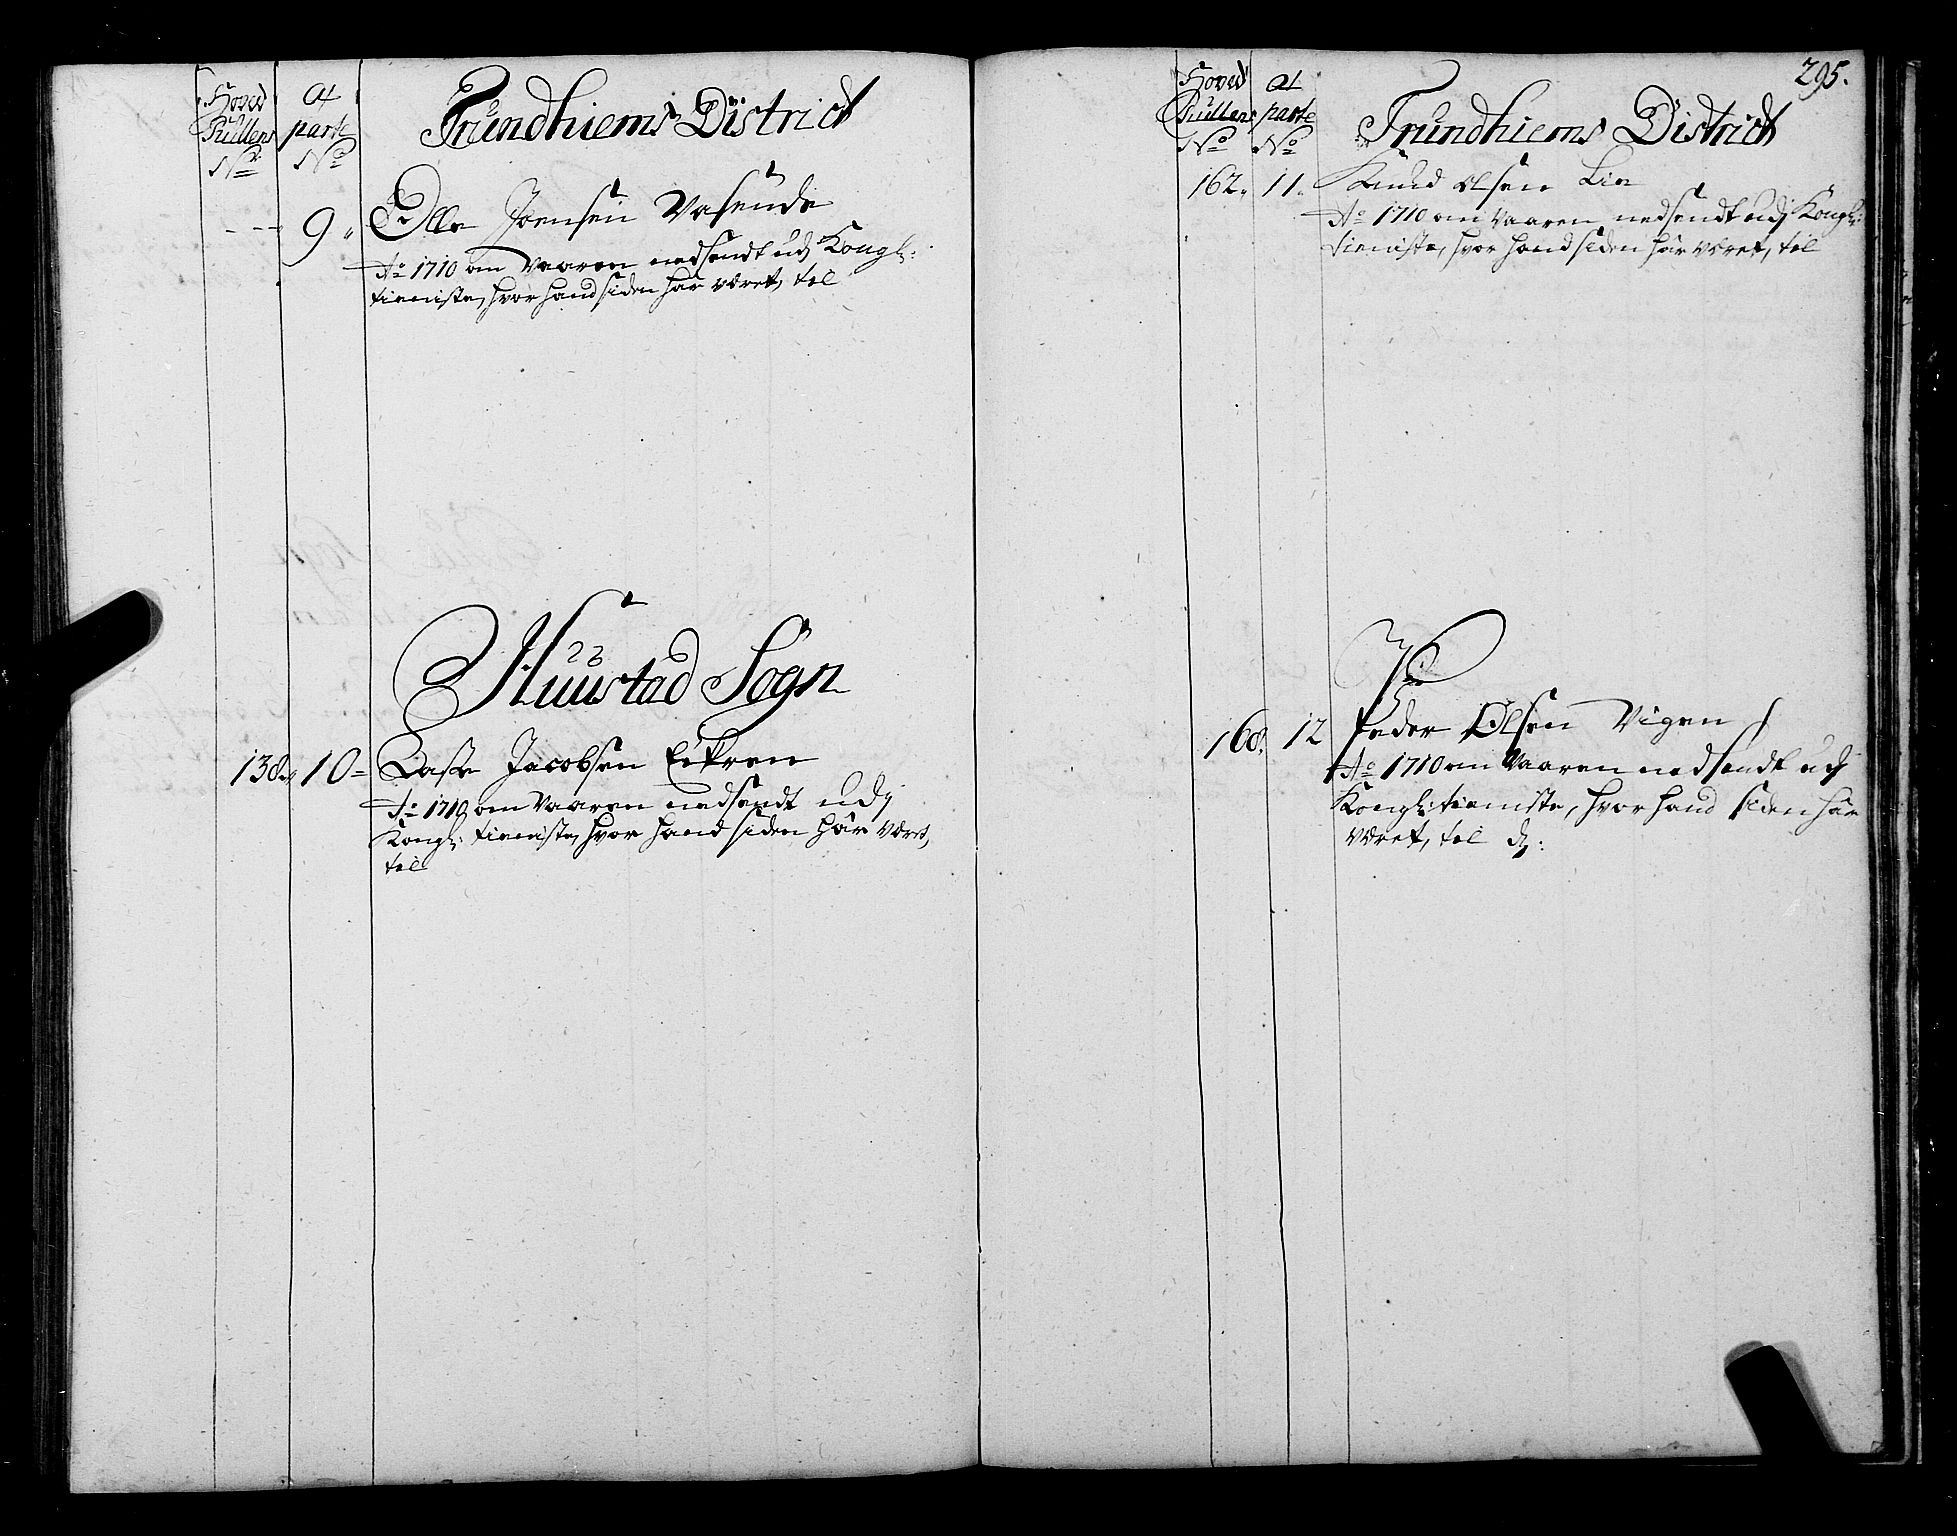 Hoved
Rullens
No
At
parte
No
Trundhiems District
9. Olle Joensen Vasende
Ao 1710 om Vaaren nedsendt udj Kongl:
tieniste, hvor hand siden har været, til
Huustad Sogn
138. 10 Lasse Jacobsen Eikren
Ao 1710 om Vaaren nedsendt udj
Kongl: tieniste, hvor hand siden har været,
til
295.
Hoved
Rullens
No
At
parte
No
Trundhiems District
162. 11. Knud Olsen Lie
Ao 1710 om Vaaren nedsendt udj Kongl:
tieniste, hvor hand siden har været, til
168. 12 Peder Olsen Vigen
Ao 1710 om Vaaren nedsendt udj
Kongl: tieniste, hvor hand siden har
været, til d: